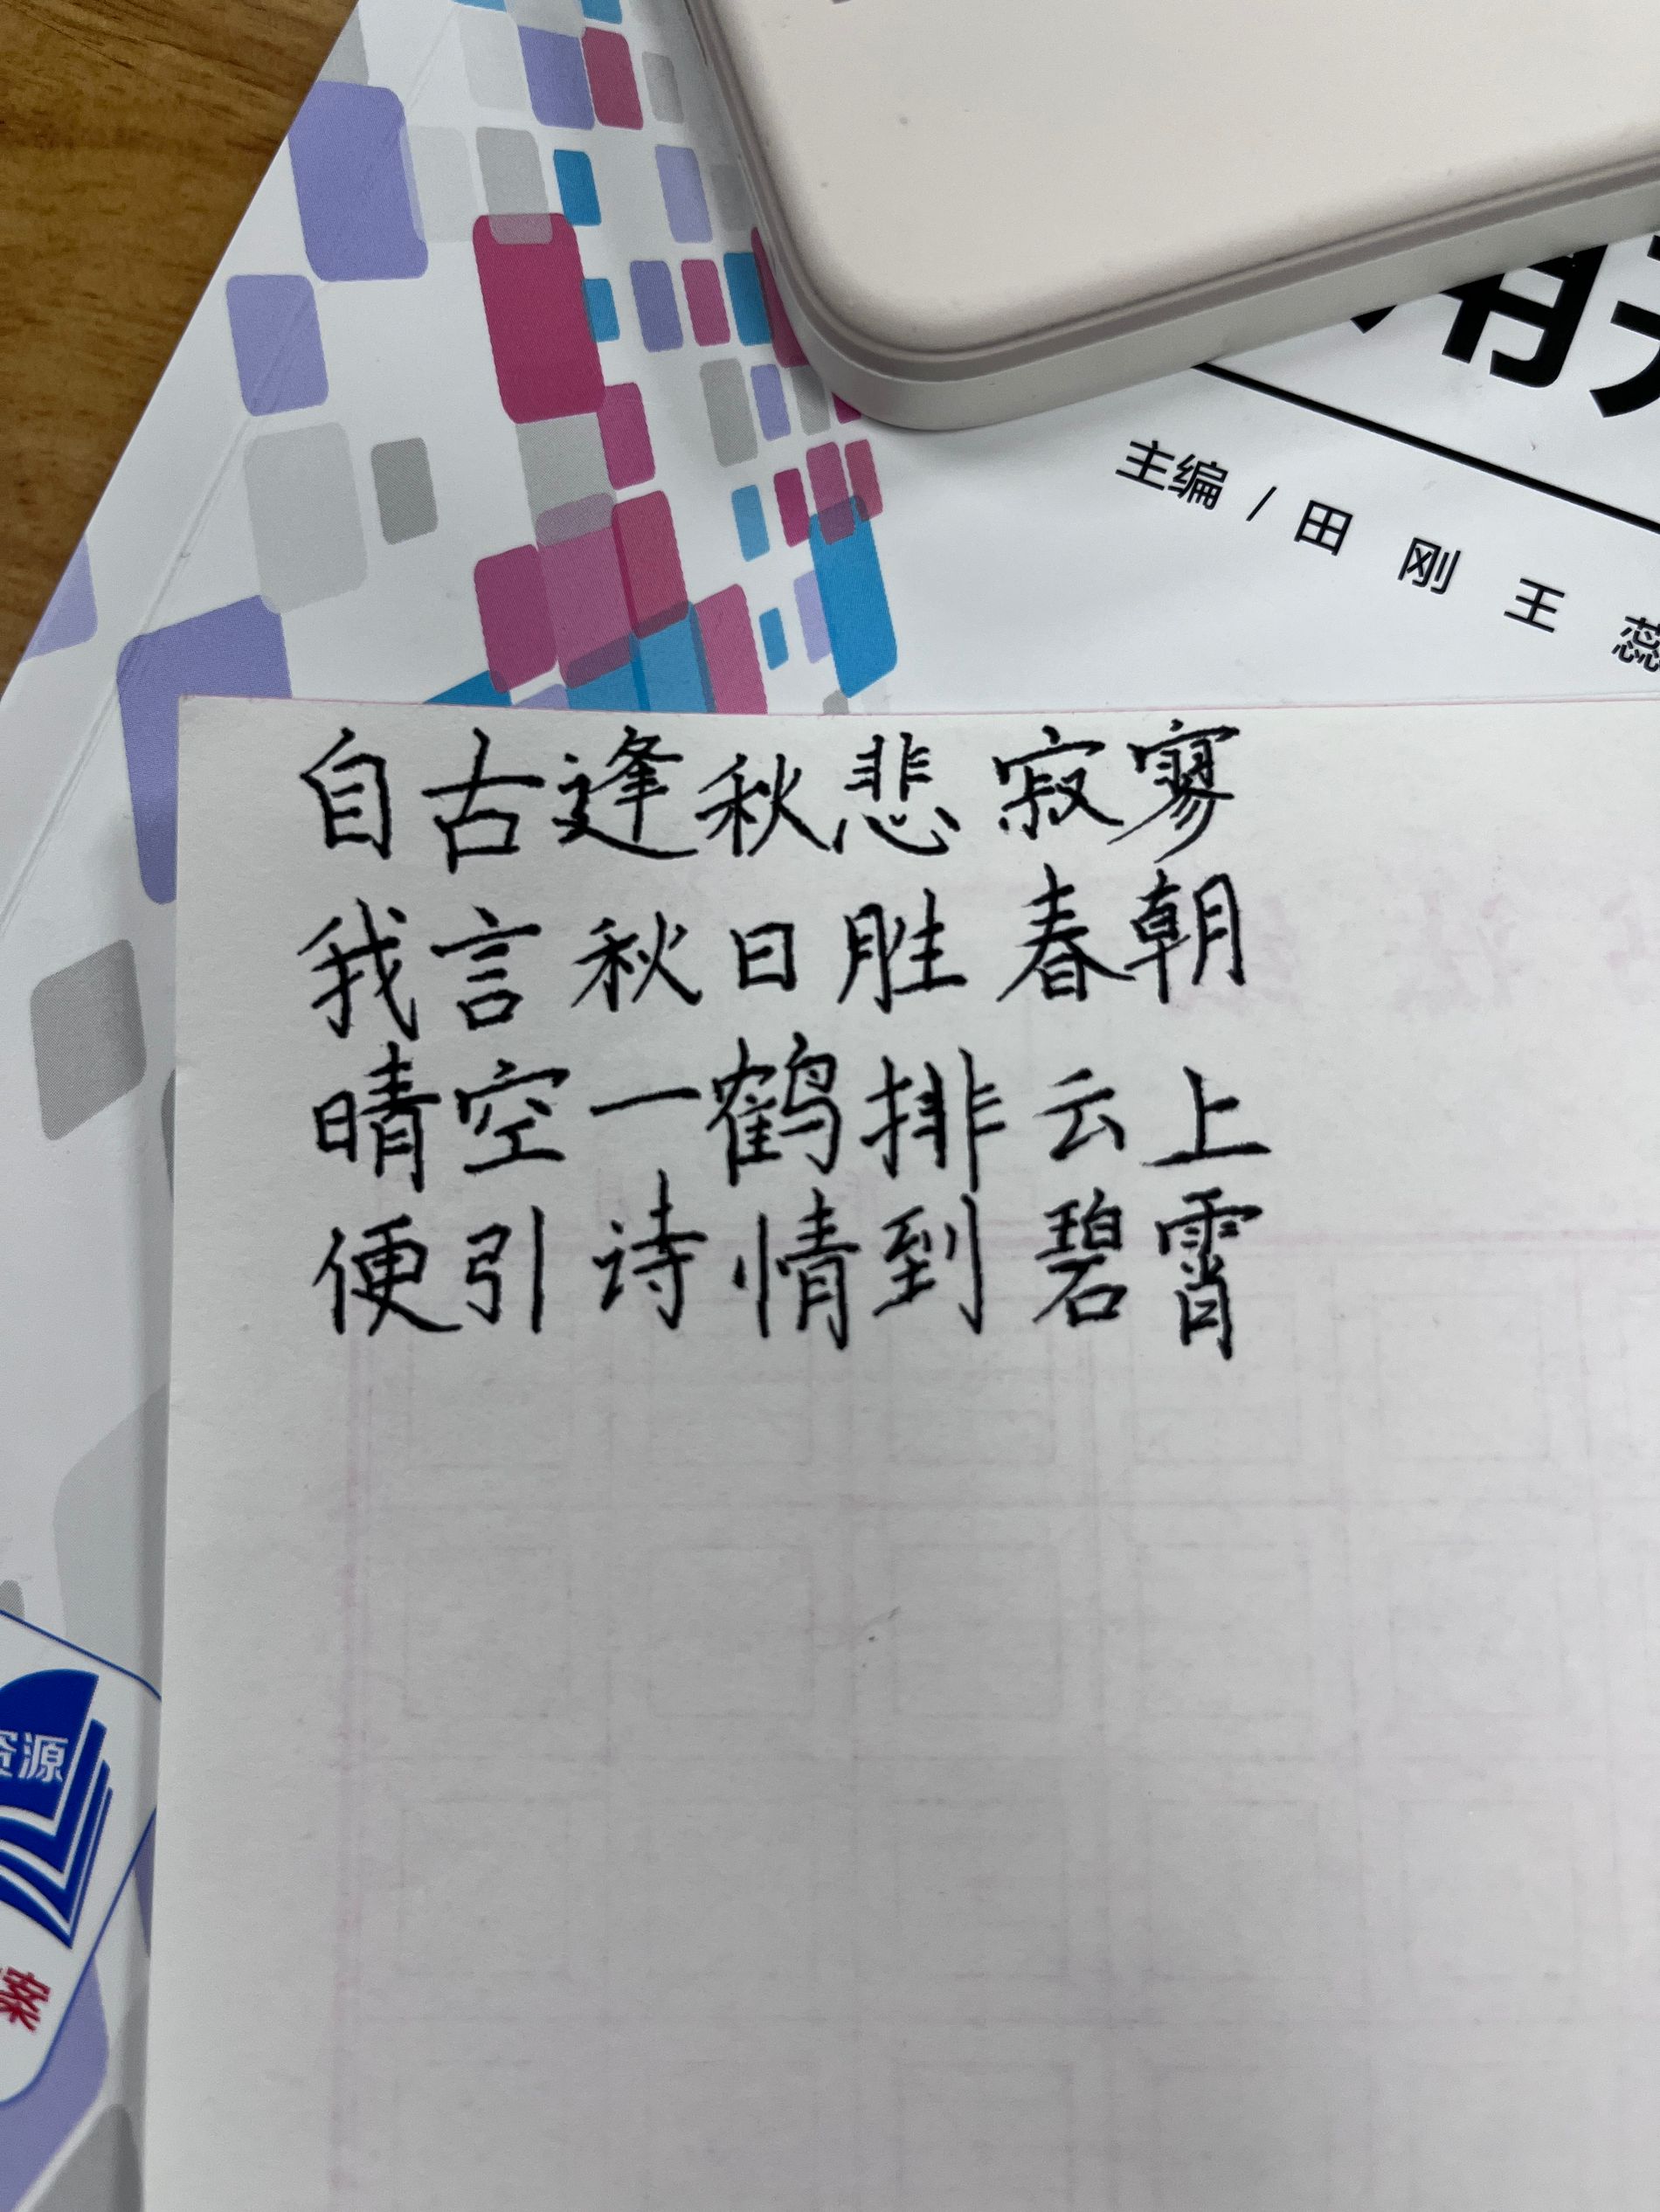 主编 / 田 刚 王 蕊
自古逢秋悲寂寥
我言秋日胜春朝
晴空一鹤排云上
便引诗情到碧霄
资源
案